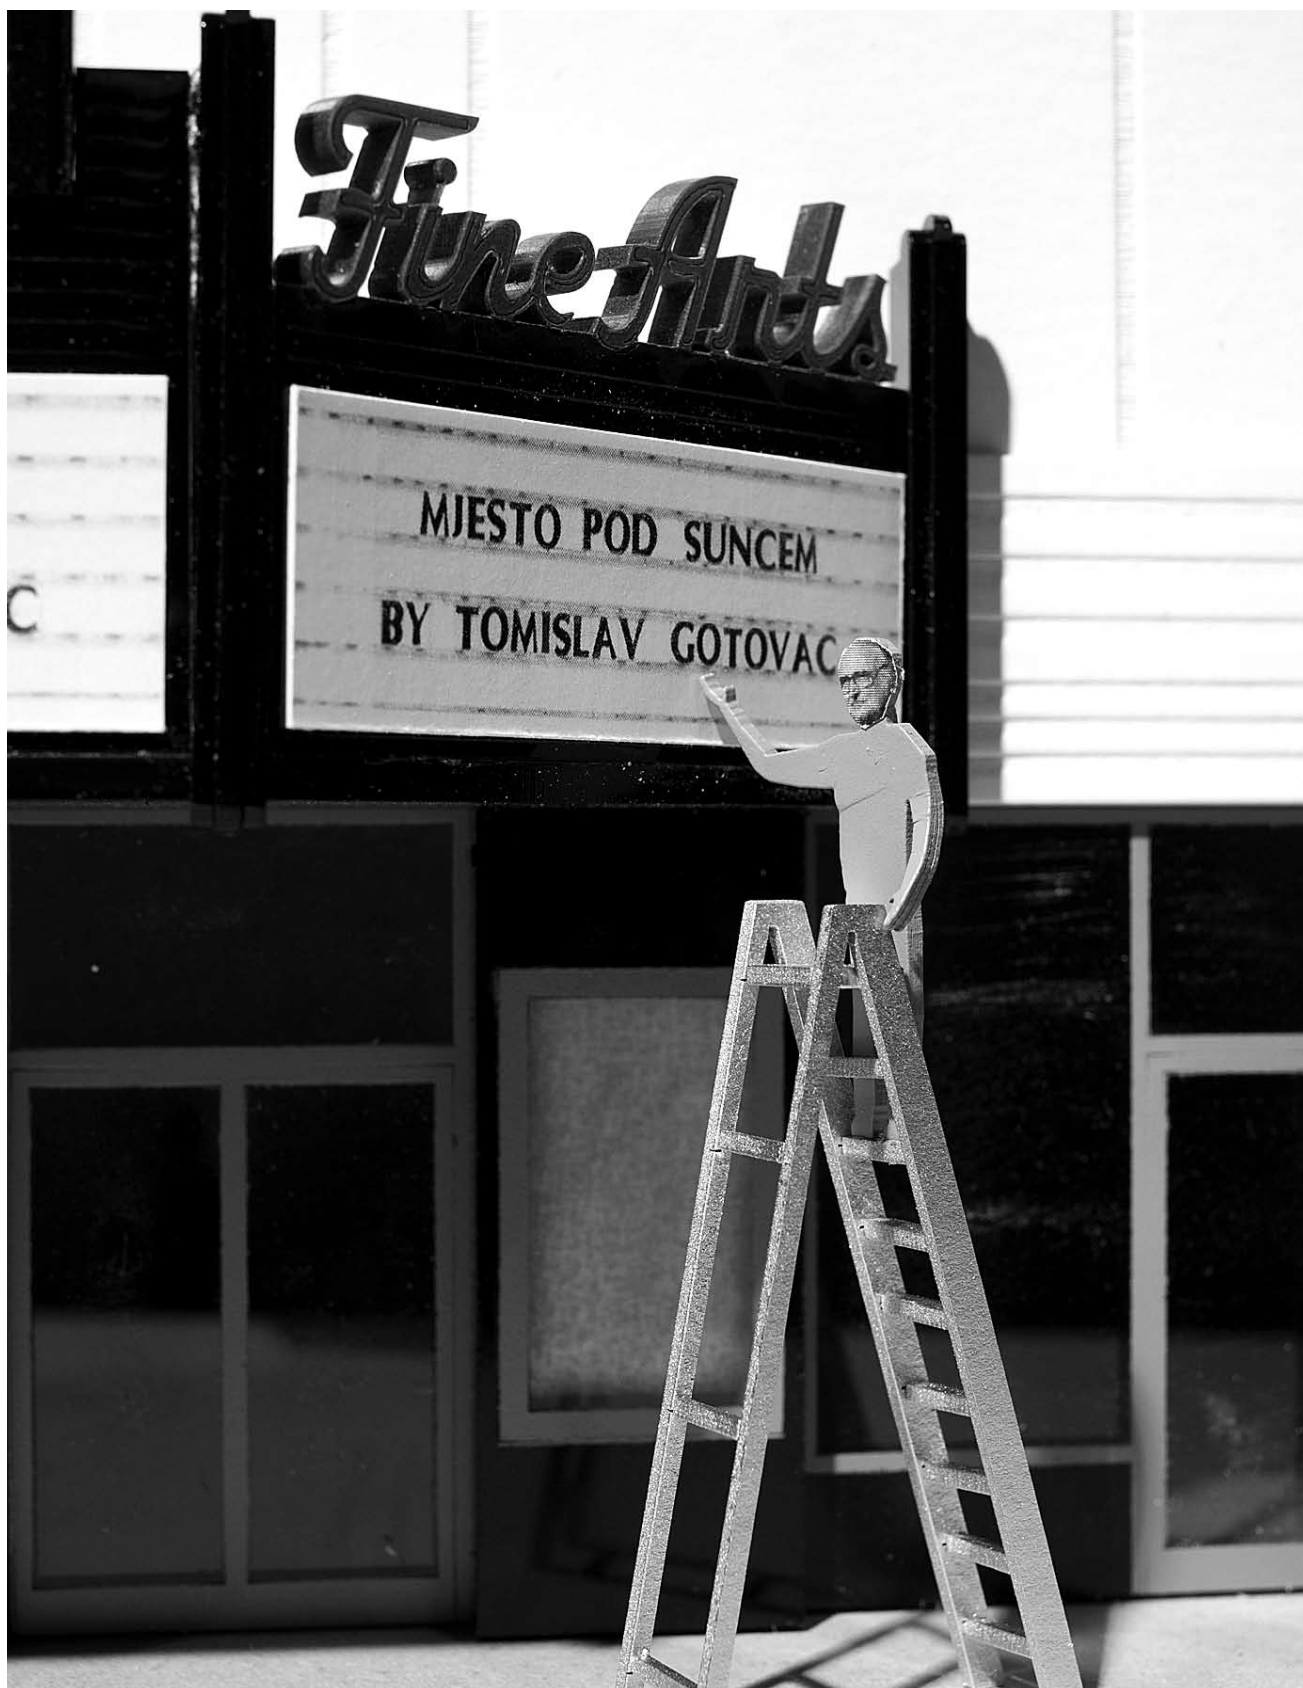 Fine Arts
MJESTO POD SUNCEM
BY TOMISLAV GOTOVAC
C